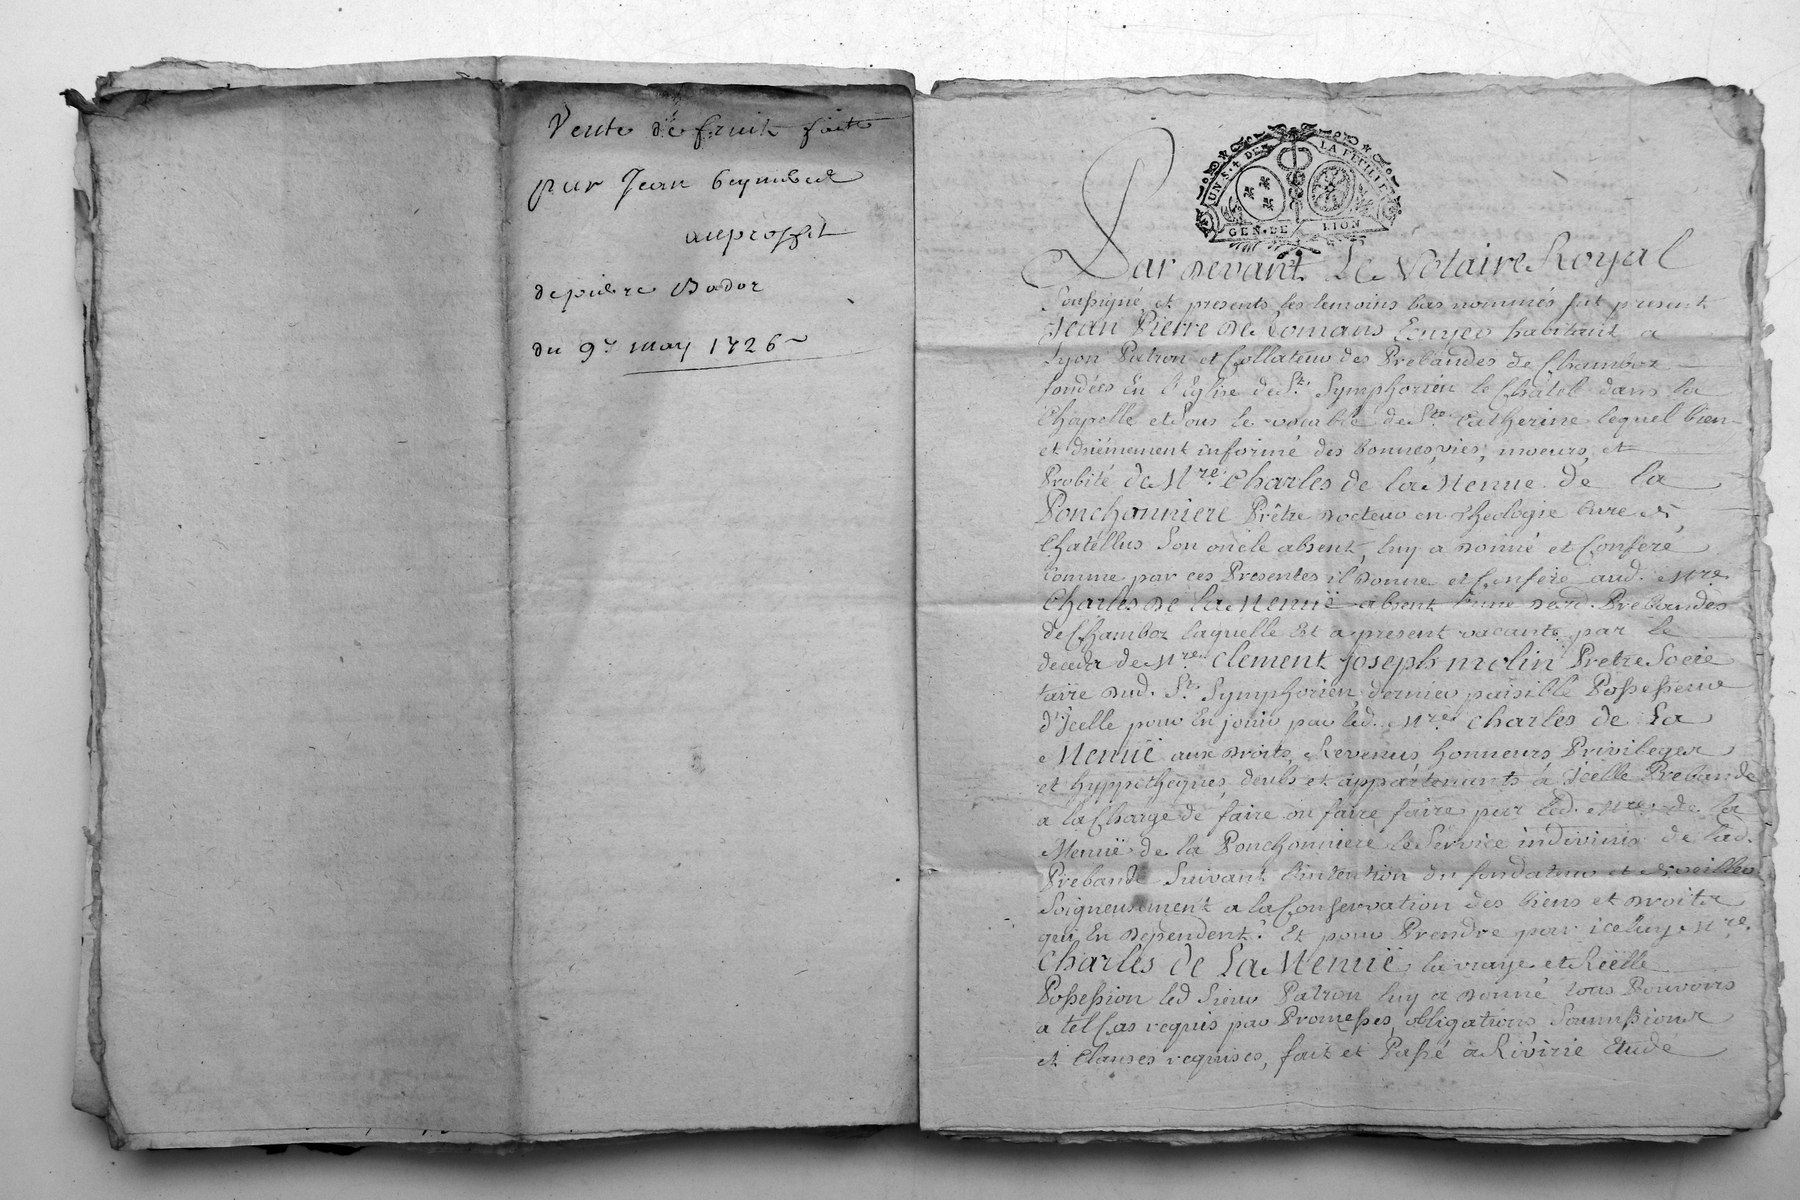 Vente de fruit faitte
par Jean
au proffit
de pierre Bador
du 9e may 1726
UN S. 4 DEN LA FEUILLE
GEN. DE LION
Par devant Le Notaire Royal
Soussigné et presents les temoins bas nommés fut present
Jean Pierre de Romans Ecuyer habitant a
Lyon Patron et Collateur des Prebandes de Chamboz
fondées En l'Eglise de St. Symphorien le Châtel dans la
Chapelle et Sous le vocable de Ste Catherine lequel bien
et duëmement informé des bonnes, vies, moeurs, et
Probité de Mre. Charles de la Menue de la
Ponchonniere Prêtre Docteur en Theologie Cure de
Chatellus Son oncle absent, luy a donné et Conferé
Comme par ces Presentes il donne et Confere aud. Mre
Charles de la Menuë absent l'une desd. Prebandes
de Chamboz laquelle Est a present vacante par le
deceds de Mre. Clement Joseph molin Pretre Socie
taire dud. St. Symphorien dernier paisible Possesseur
d'Icelle pour En jouir par led. Mre Charles de La
Menuë aux Droits, Revenus, honneurs, Privileges
et hyppotheques, deubs et appartenants à Icelle Prebande
a la Charge de faire ou faire faire par led. Mre. de la
Menuë de la Ponchonniere le Service indivinis de lad.
Prebande Suivant l'intention du fondateur et de veiller
Soigneusement a la Conservation des biens et Droits
qui En Dependent. Et pour Prendre par iceluy Mre.
Charles de La Menuë la vraye et Réelle
Possession led Sieur Patron luy a donné tous Pouvoirs
a tel Cas requis par Promesses, obligations, Soumissions
et Clauses requises, fait et Passé à Rivirie Etude